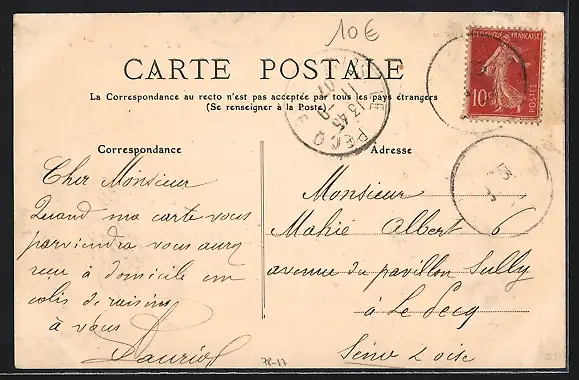 10€
CARTE POSTALE
La Correspondance au recto n'est pas acceptée par tous les pays étrangers
(Se renseigner à la Poste)
REPUBLIQUE FRANÇAISE
10c
POSTES
13 45
PECQ
Correspondance
Cher Monsieur
Quand ma carte vous
parviendra vous aurez
reçu à domicile un
colis de raisins
à vous
Adresse
Monsieur
Mahié Albert 6
avenue du pavillon Sully
à Le Pecq
Seine & oise
78-17